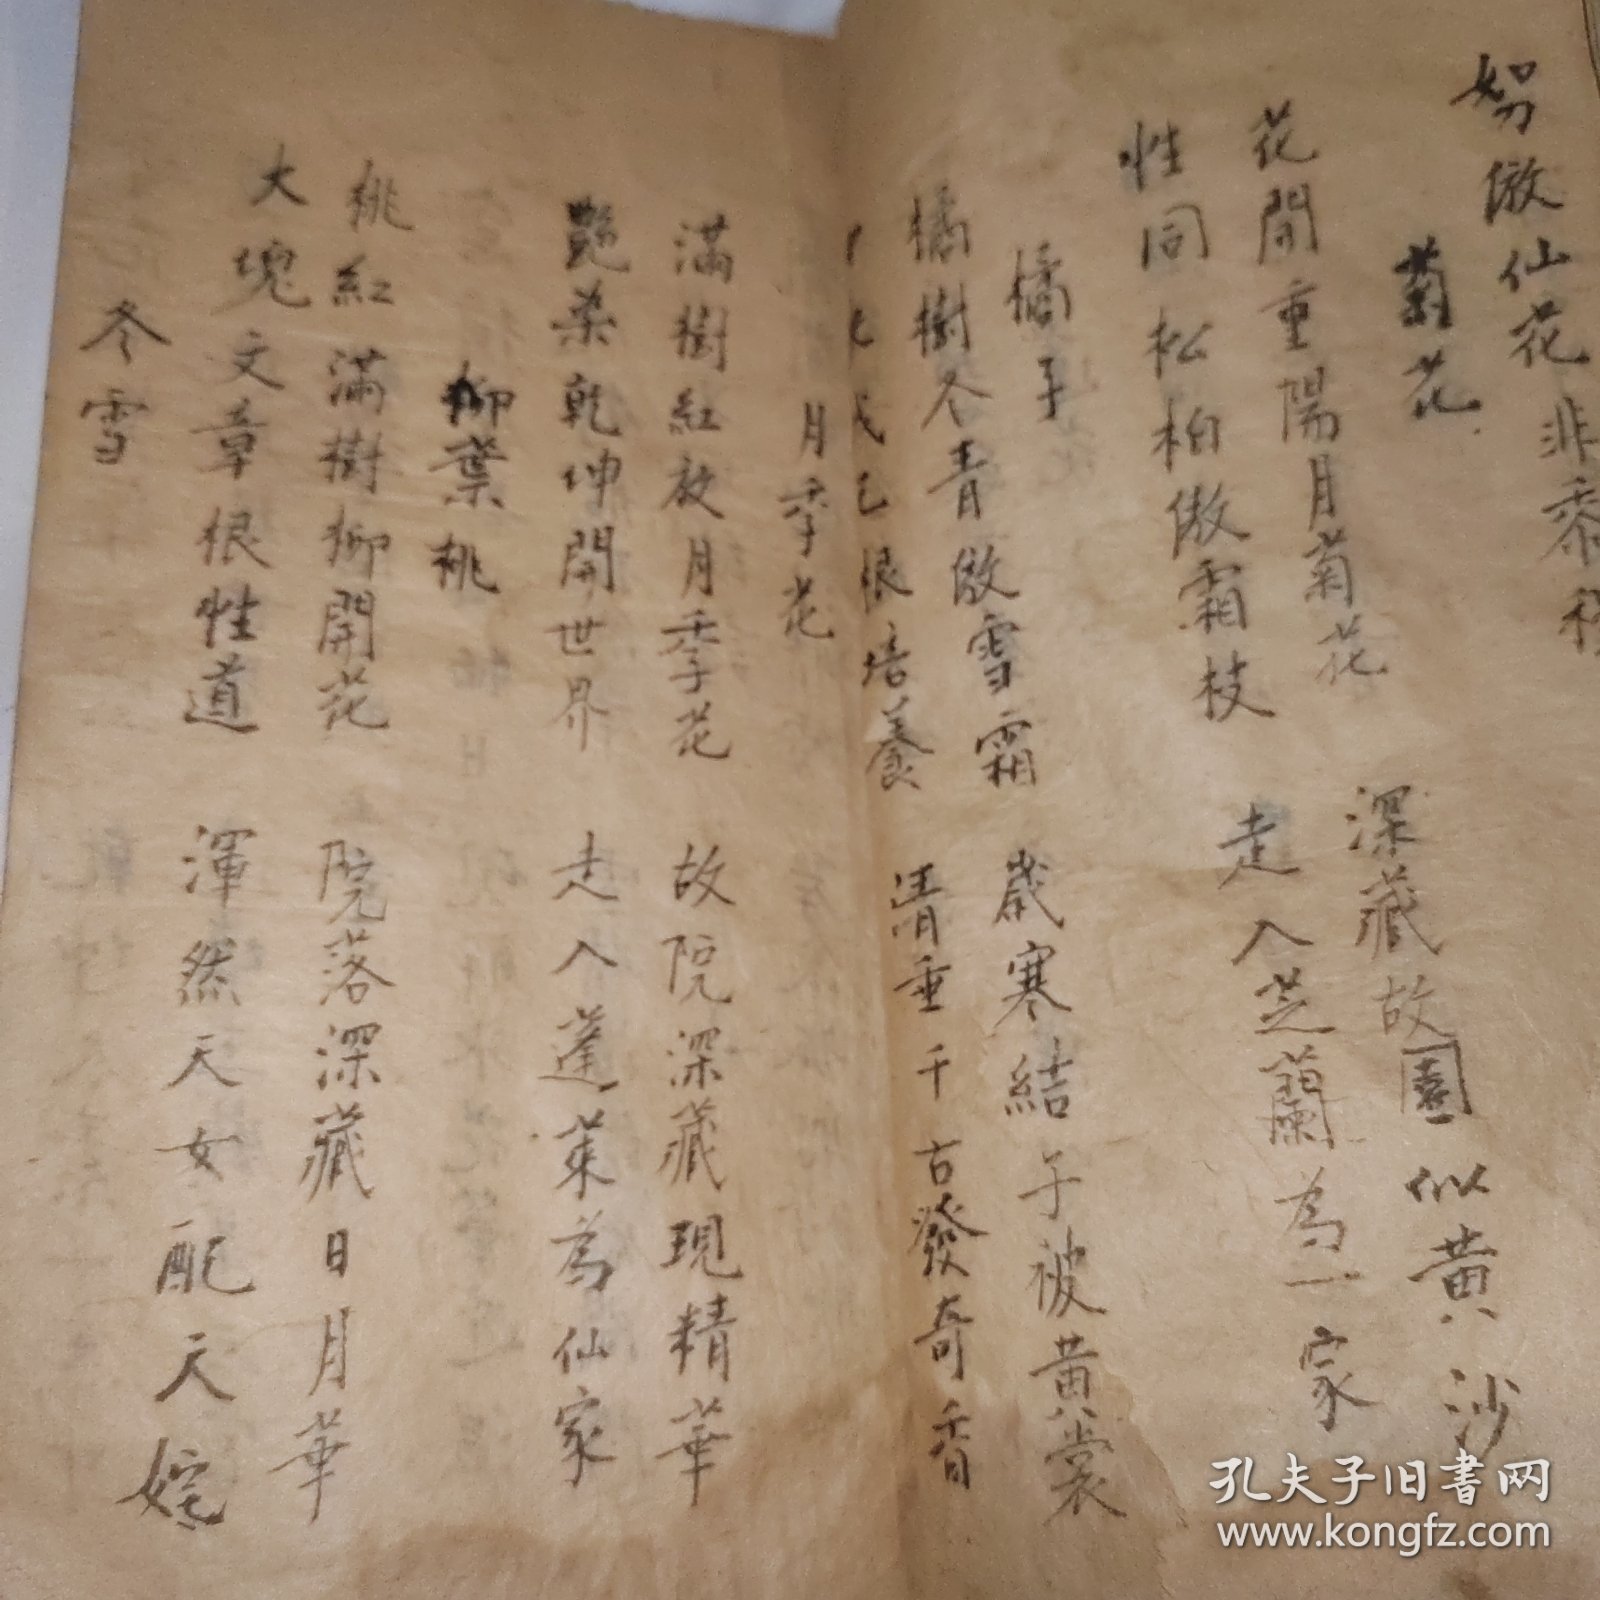 傲仙花非黍
菊花
花開重陽月菊花 深藏故園似黄沙
性同松柏傲霜枝 走入芝蘭為一家
橘子
橘樹冬青傲雪霜 歲寒結子被黄裳
戊己根培養 清垂千古發奇香
月季花
滿樹紅放月季花 故院深藏現精華
艷染乾坤開世界 走入蓬萊為仙家
柳葉桃
桃紅滿樹柳開花 院落深藏日月華
大塊文章根性道 渾然天女配天
冬雪
孔夫子旧書网
www.kongfz.com